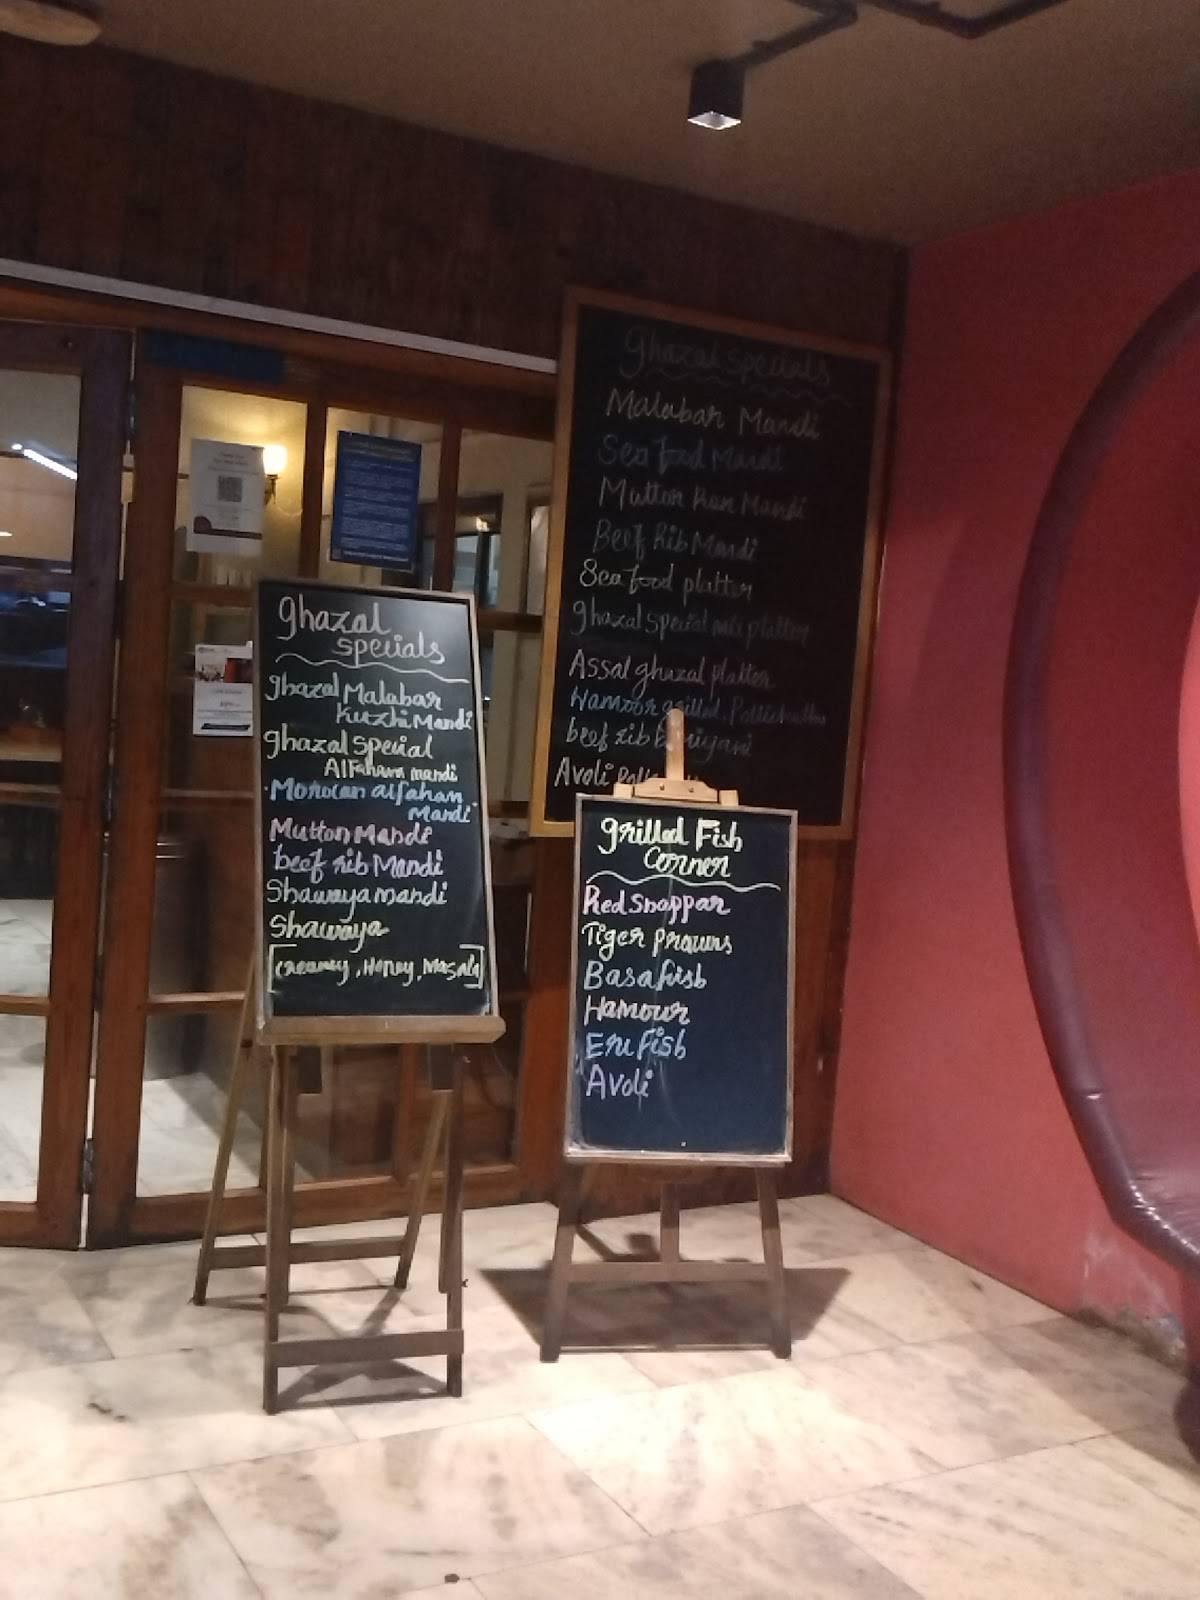 Ghazal
specials
Ghazal Malabar
Kuzhi Mandi
Ghazal Special
AlFaham mandi
Morocan alfahan
Mandi
Mutton Mandi
beef rib Mandi
Shawaya mandi
Shawaya
[Creamy, Honey, Masala]
Ghazal Specials
Malabar Mandi
Sea food Mandi
Mutton Ran Mandi
Beef Rib Mandi
Sea food platter
Ghazal Special mix platter
Assal ghazal platter
Hamoor grilled, Pollichathu
beef rib biriyani
Avoli
Grilled Fish
Corner
Red snappar
Tiger prawns
Basa fish
Hamour
Eru fish
Avoli